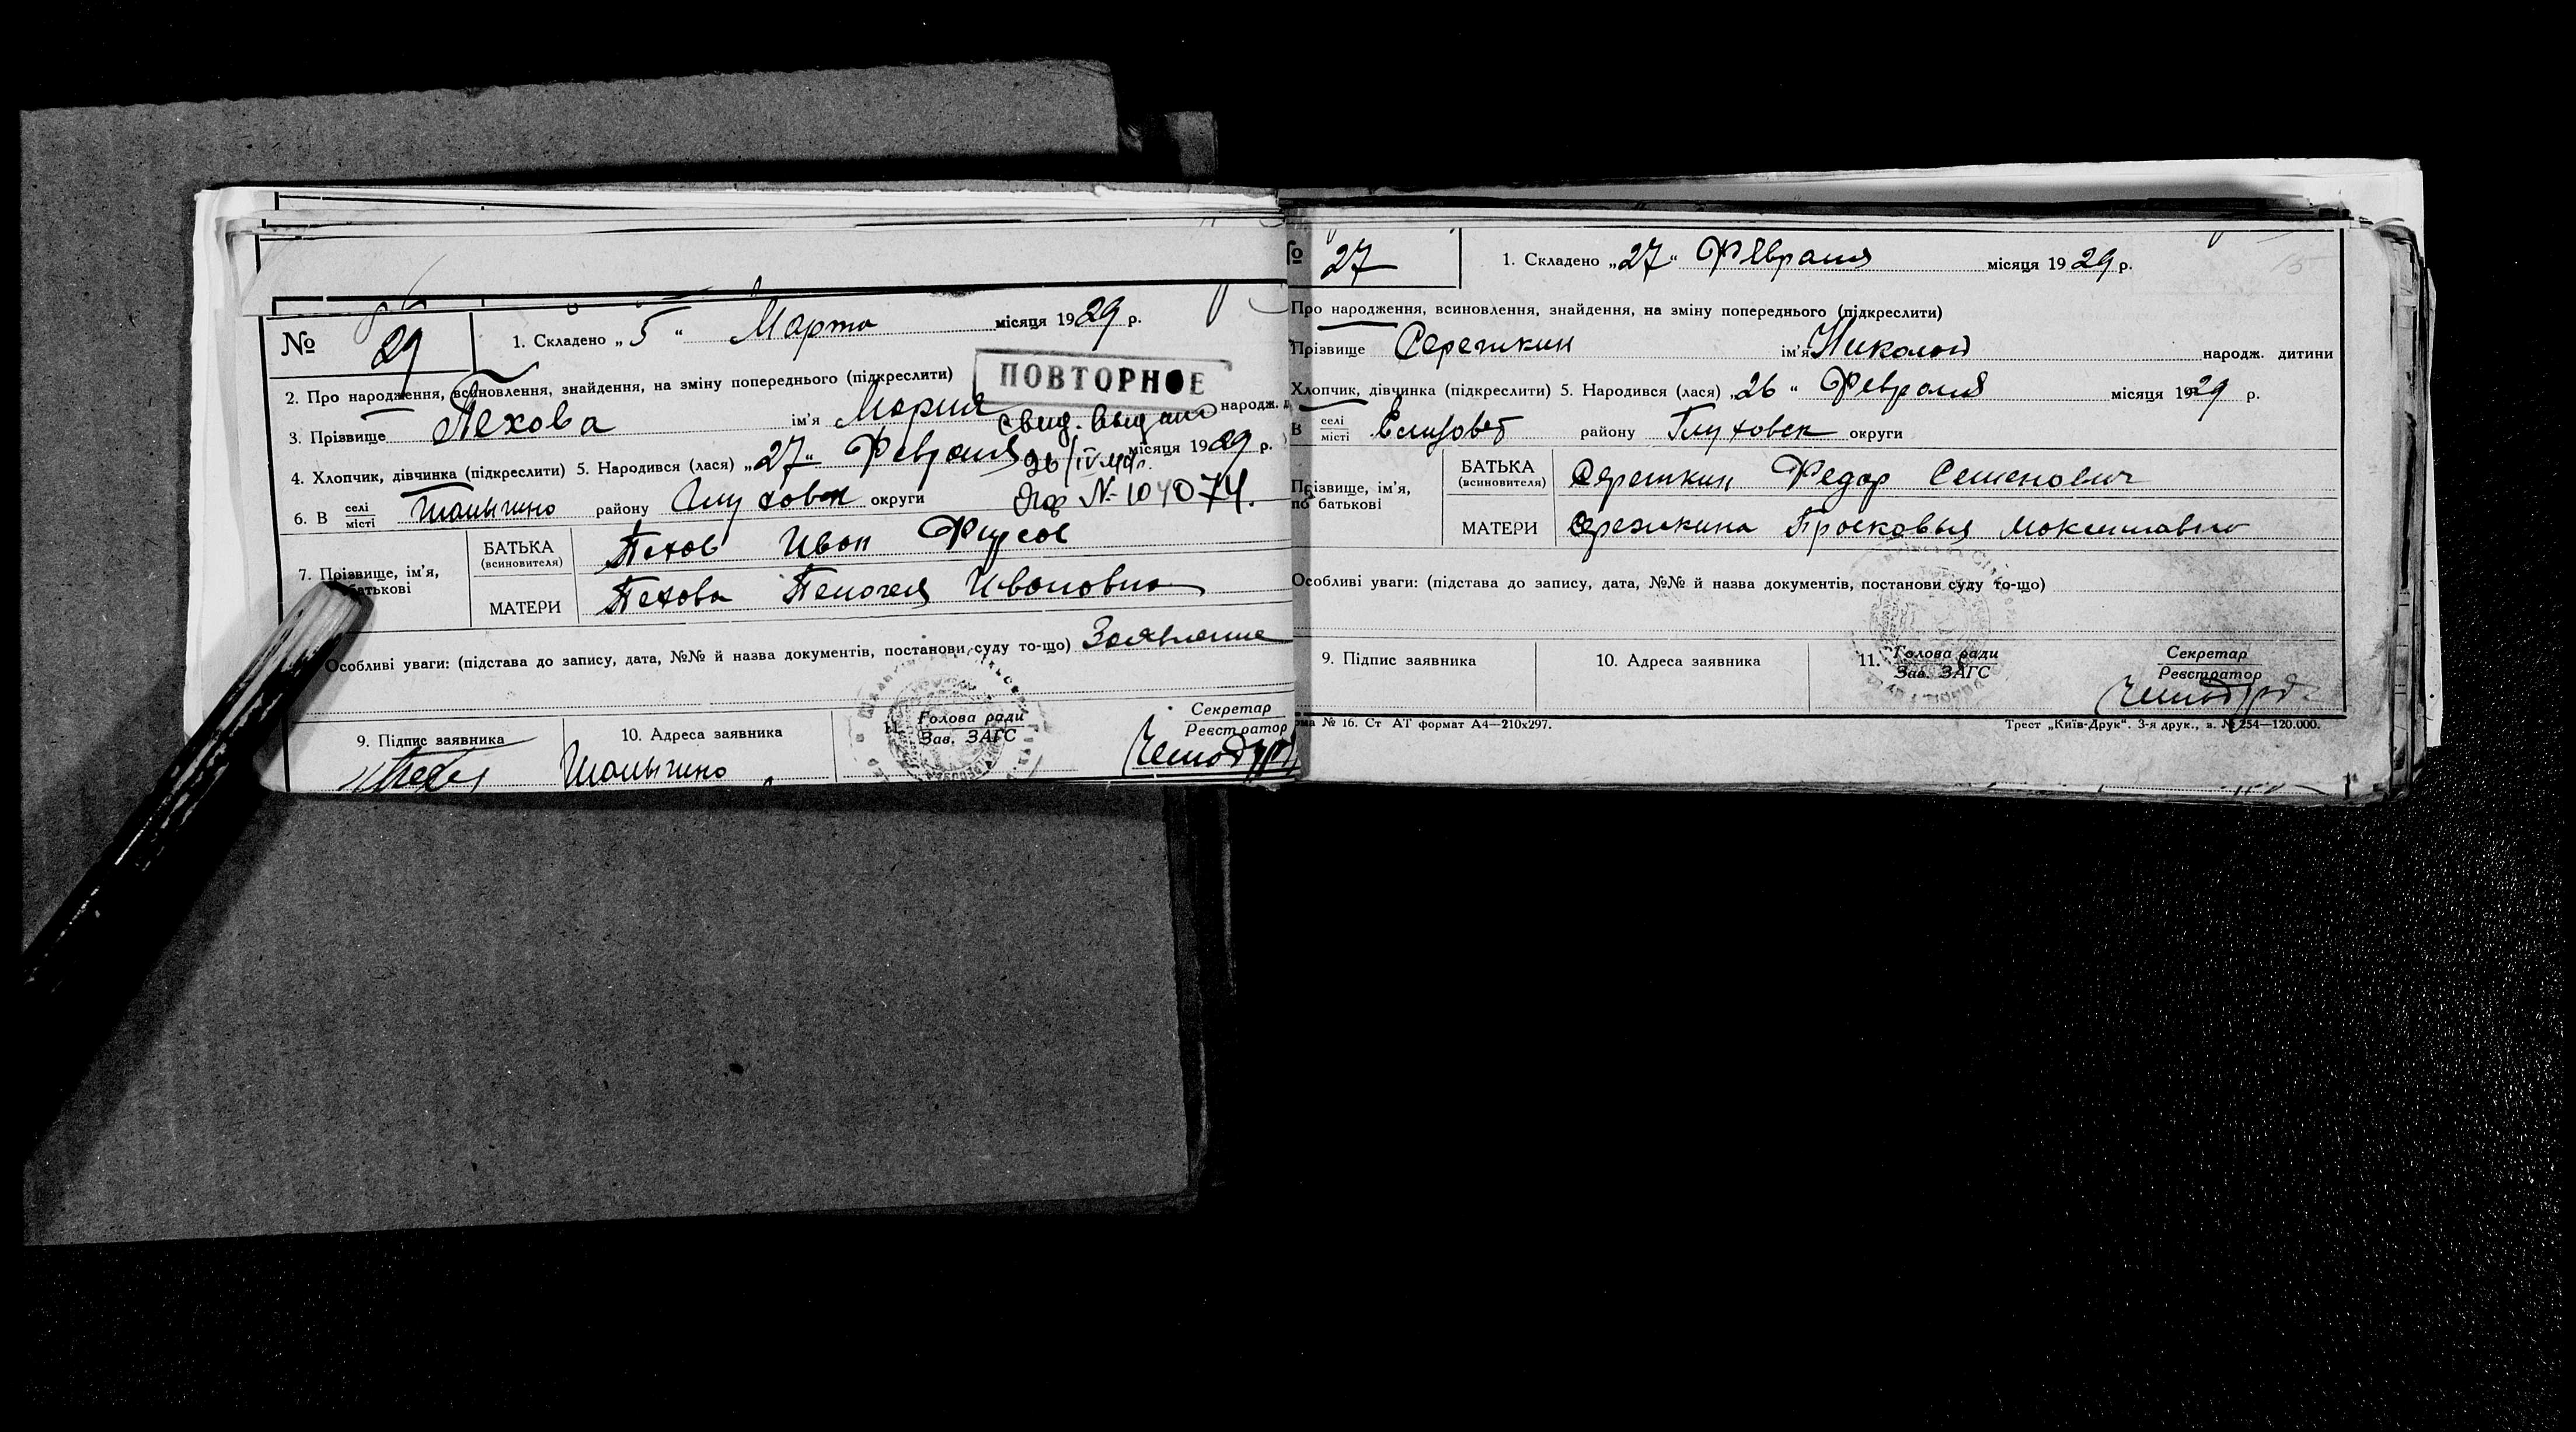 № 29 1. Складено „5“ Марта місяця 1929 р.
2. Про народження, всиновлення, знайдення, на зміну попереднього (підкреслити)
ПОВТОРНОЕ
3. Прізвище Пехова ім'я Мария народж.
свид. выдано
4. Хлопчик, дівчинка (підкреслити) 5. Народився (лася) „27“ Февраля місяця 1929 р.
26/IV
6. В селі місті Шалыгино району Глуховск округи
№ 104074.
7. Прізвище, ім'я, батькові
БАТЬКА (всиновителя) Пехов Иван Фирсов
МАТЕРИ Пехова Пелагея Ивановна
Особливі уваги: (підстава до запису, дата, №№ й назва документів, постанови суду то-що) Заявление
9. Підпис заявника 10. Адреса заявника 11. Голова ради Зав. ЗАГС Секретар Реєстратор
Шалыгино
№ 27 1. Складено „27“ Февраля місяця 1929 р.
Про народження, всиновлення, знайдення, на зміну попереднього (підкреслити)
Прізвище Сережкин ім'я Николай народж. дитини
Хлопчик, дівчинка (підкреслити) 5. Народився (лася) „26“ Февраля місяця 1929 р.
В селі місті Елизовет району Глуховск округи
Прізвище, ім'я, по батькові
БАТЬКА (всиновителя) Сережкин Федор Семенович
МАТЕРИ Сережкина Просковья Максимавна
Особливі уваги: (підстава до запису, дата, №№ й назва документів, постанови суду то-що)
9. Підпис заявника 10. Адреса заявника 11. Голова ради Зав. ЗАГС Секретар Реєстратор
№ 16. Ст АТ формат А4—210х297. Трест „Київ-Друк“. 3-я друк., з. № 254—120.000.